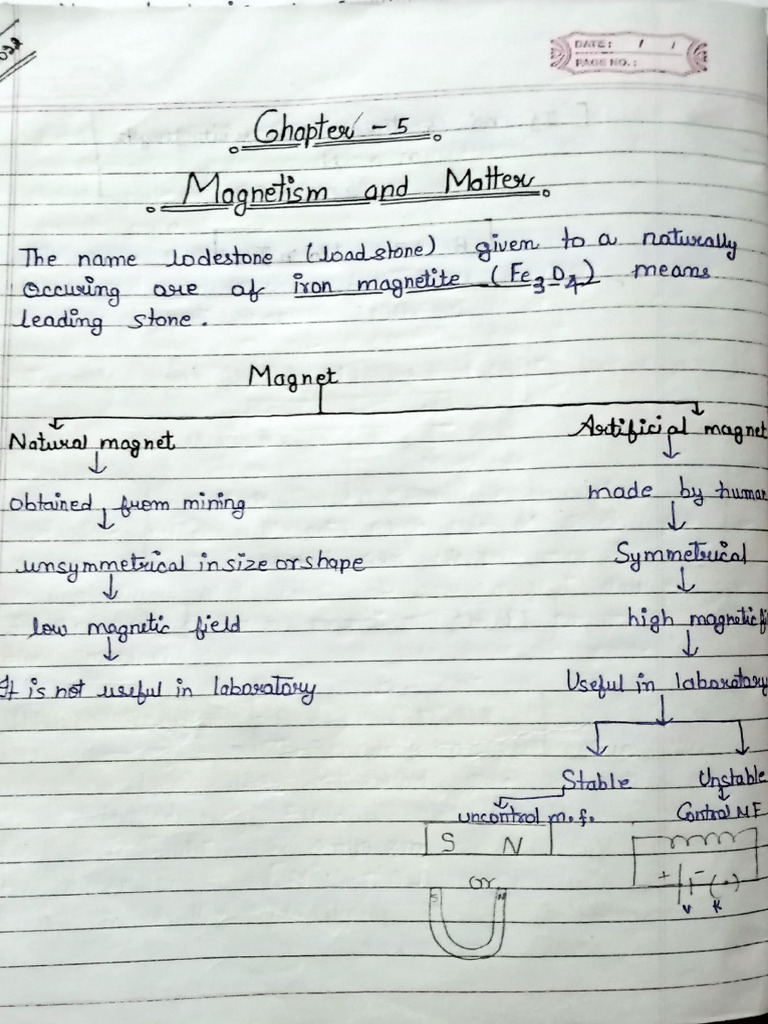 DATE: / /
PAGE NO.:
Chapter - 5
Magnetism and Matter
The name lodestone (loadstone) given to a naturally
occuring ore of iron magnetite (Fe3O4) means
leading stone.
Magnet
Natural magnet Artificial magnet
obtained from mining made by human
unsymmetrical in size or shape Symmetrical
low magnetic field high magnetic fi
It is not useful in laboratory Useful in laboratory
Stable Unstable
uncontrol m.f. Control MF
S N
+ - (.)
V K
or
S N